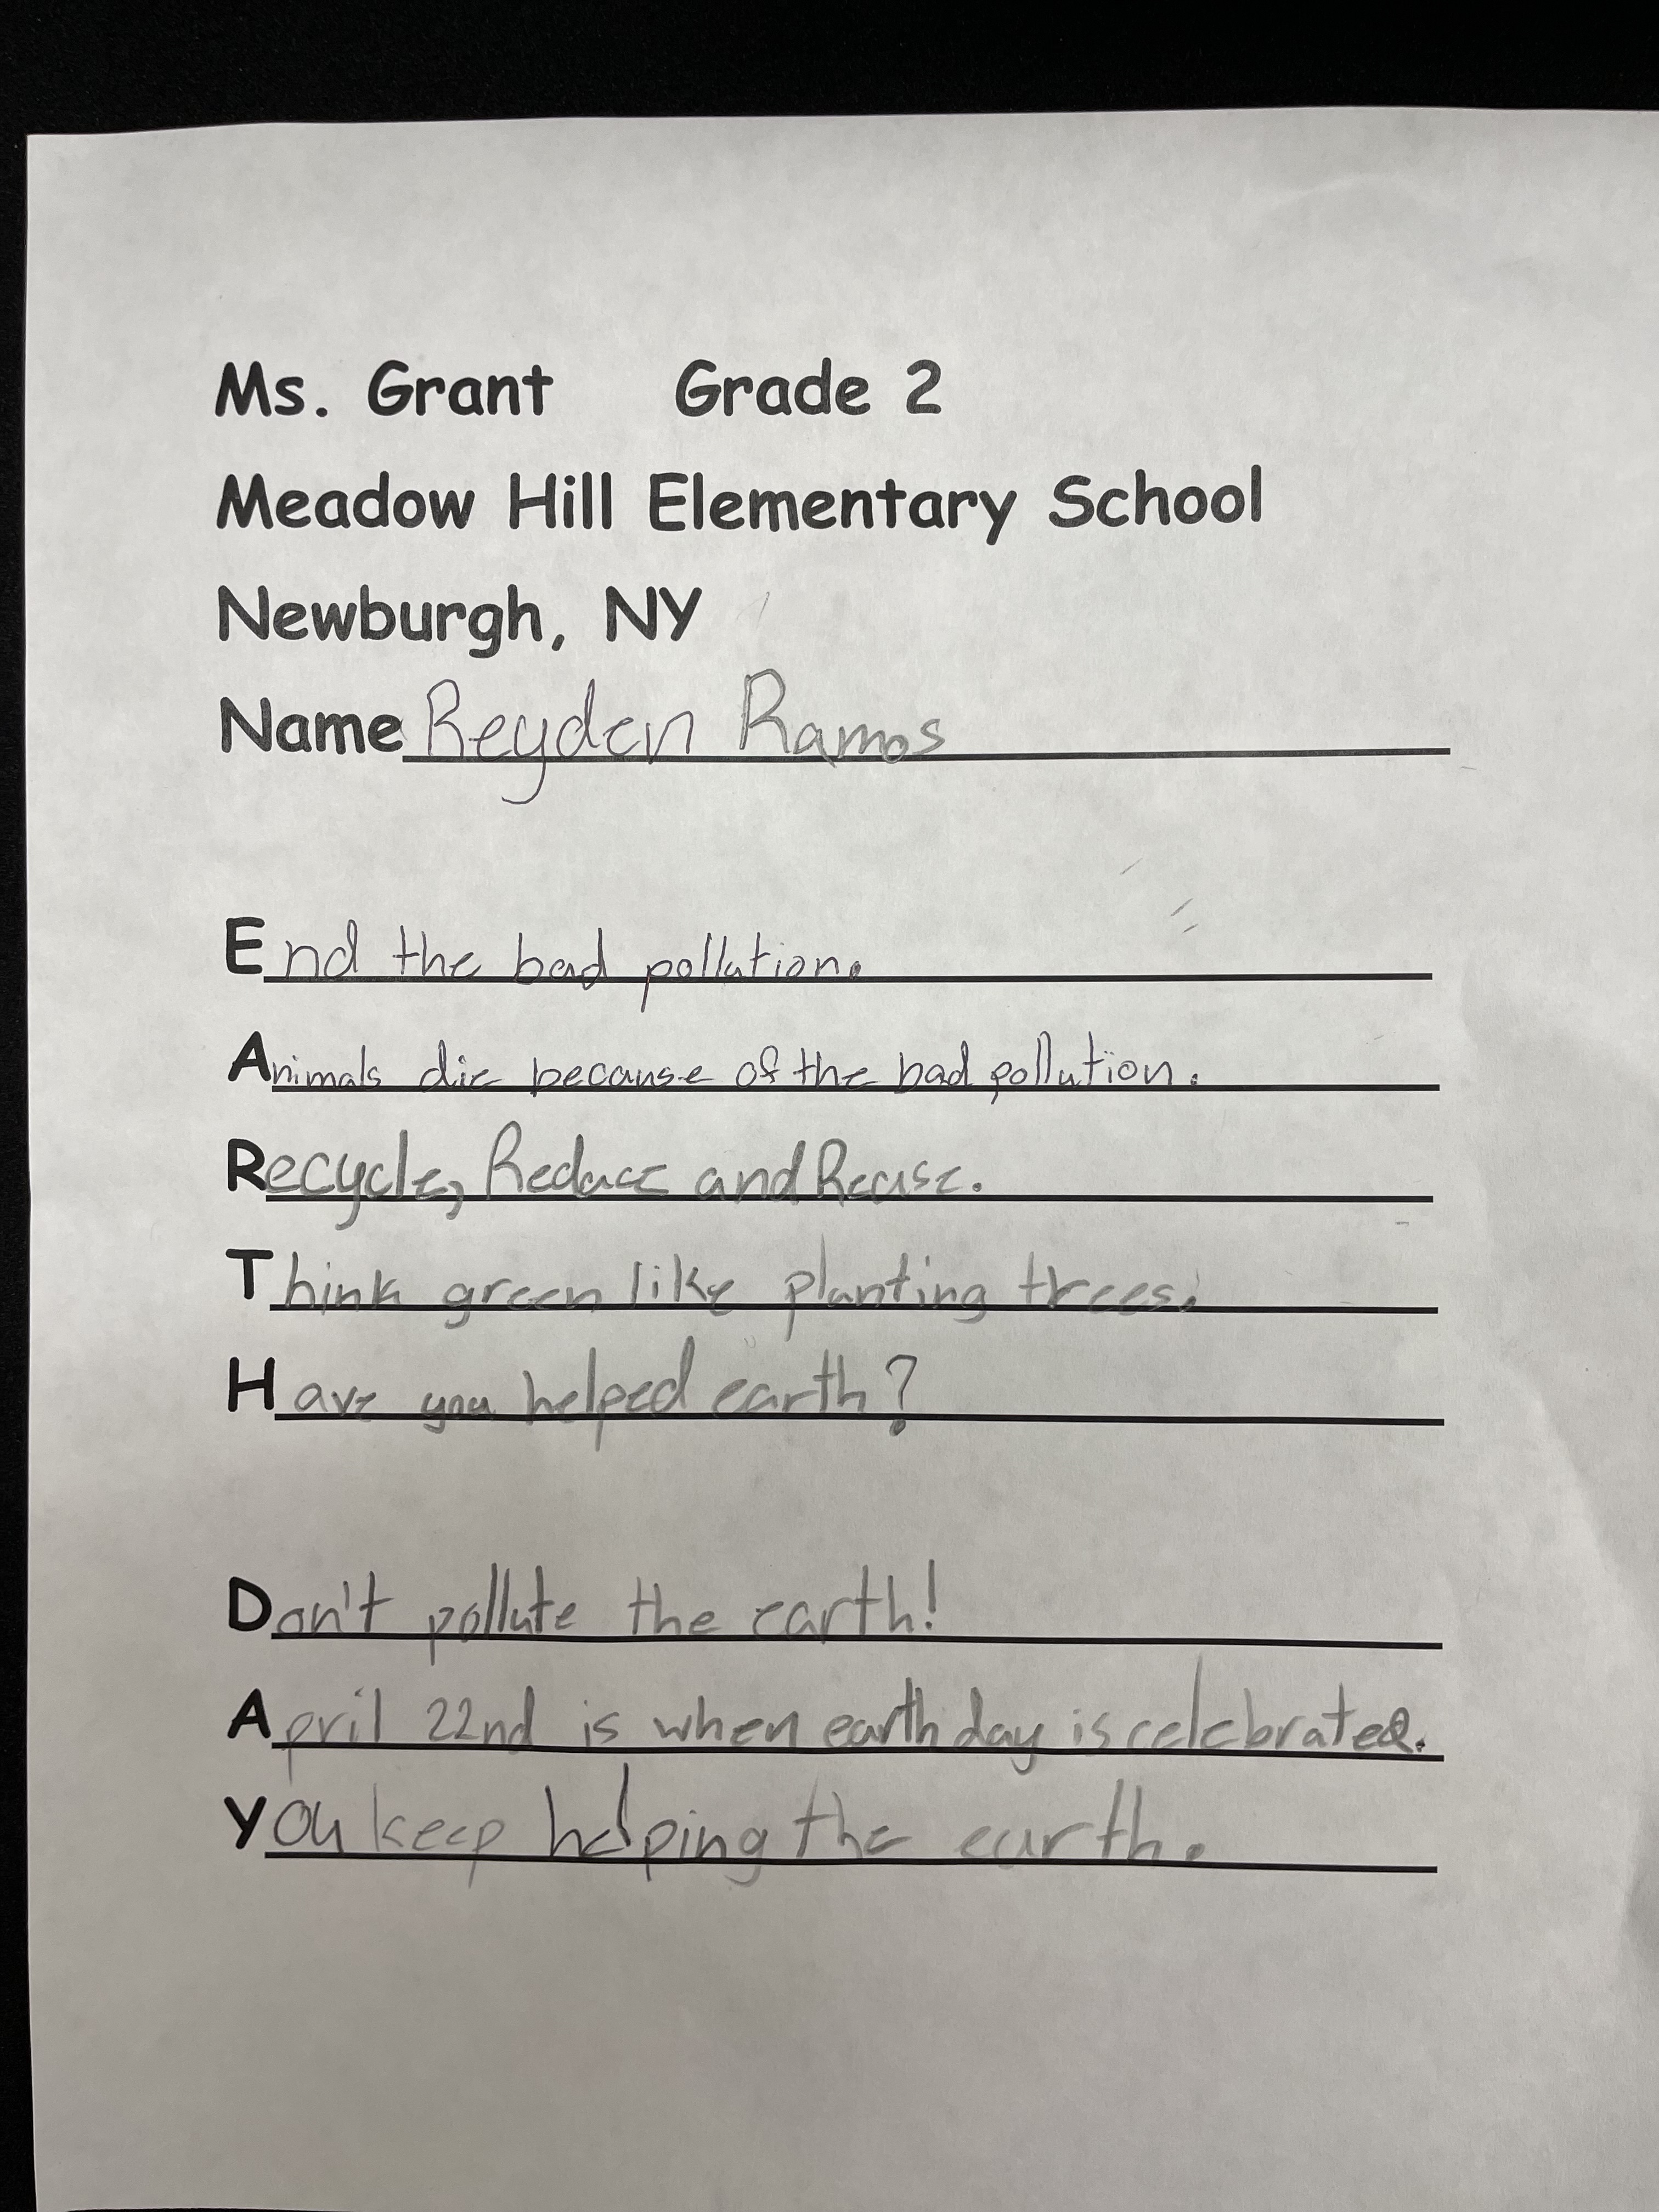 Ms. Grant Grade 2
Meadow Hill Elementary School
Newburgh, NY
Name Reyden Ramos
End the bad pollution.
Animals die because of the bad pollution.
Recycle, Reduce and Reuse.
Think green like planting trees.
Have you helped earth?
Don't pollute the earth!
April 22nd is when earth day is celebrated.
You keep helping the earth.